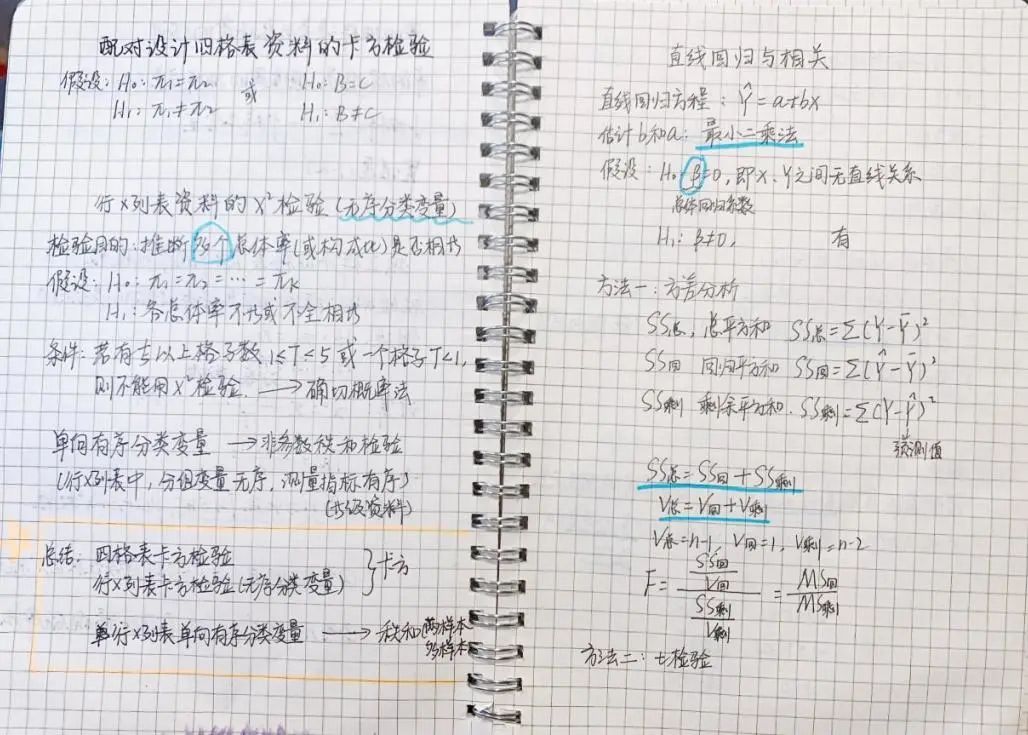 配对设计四格表资料的卡方检验
假设: H₀: π₁=π₂ 或 H₀: B=C
H₁: π₁≠π₂ H₁: B≠C
行×列表资料的X²检验 (无序分类变量)
检验目的: 推断多个总体率(或构成比)是否相等
假设: H₀: π₁=π₂=…=πₖ
H₁: 各总体率不等或不全相等
条件: 若有1/5以上格子数 1≤T≤5 或一个格子T<1,
则不能用X²检验. → 确切概率法
单向有序分类变量 → 非参数秩和检验
(行×列表中, 分组变量无序, 测量指标有序)
(等级资料)
总结: 四格表卡方检验
行×列表卡方检验(无序分类变量) }卡方
行×列表单向有序分类变量 → 秩和(两样本
多样本
直线回归与相关
直线回归方程: Ŷ=a+bx
估计b和a: 最小二乘法
假设: H₀: β=0, 即X、Y之间无直线关系
总体回归系数
H₁: β≠0, 有
方法一: 方差分析
SS总, 总平方和 SS总=Σ(Y-Ȳ)²
SS回 回归平方和 SS回=Σ(Ŷ-Ȳ)²
SS剩 剩余平方和. SS剩=Σ(Y-Ŷ)²
预测值
SS总=SS回+SS剩
V总=V回+V剩
V总=n-1, V回=1, V剩=n-2
F= (SS回/V回)/(SS剩/V剩) = MS回/MS剩
方法二: t检验